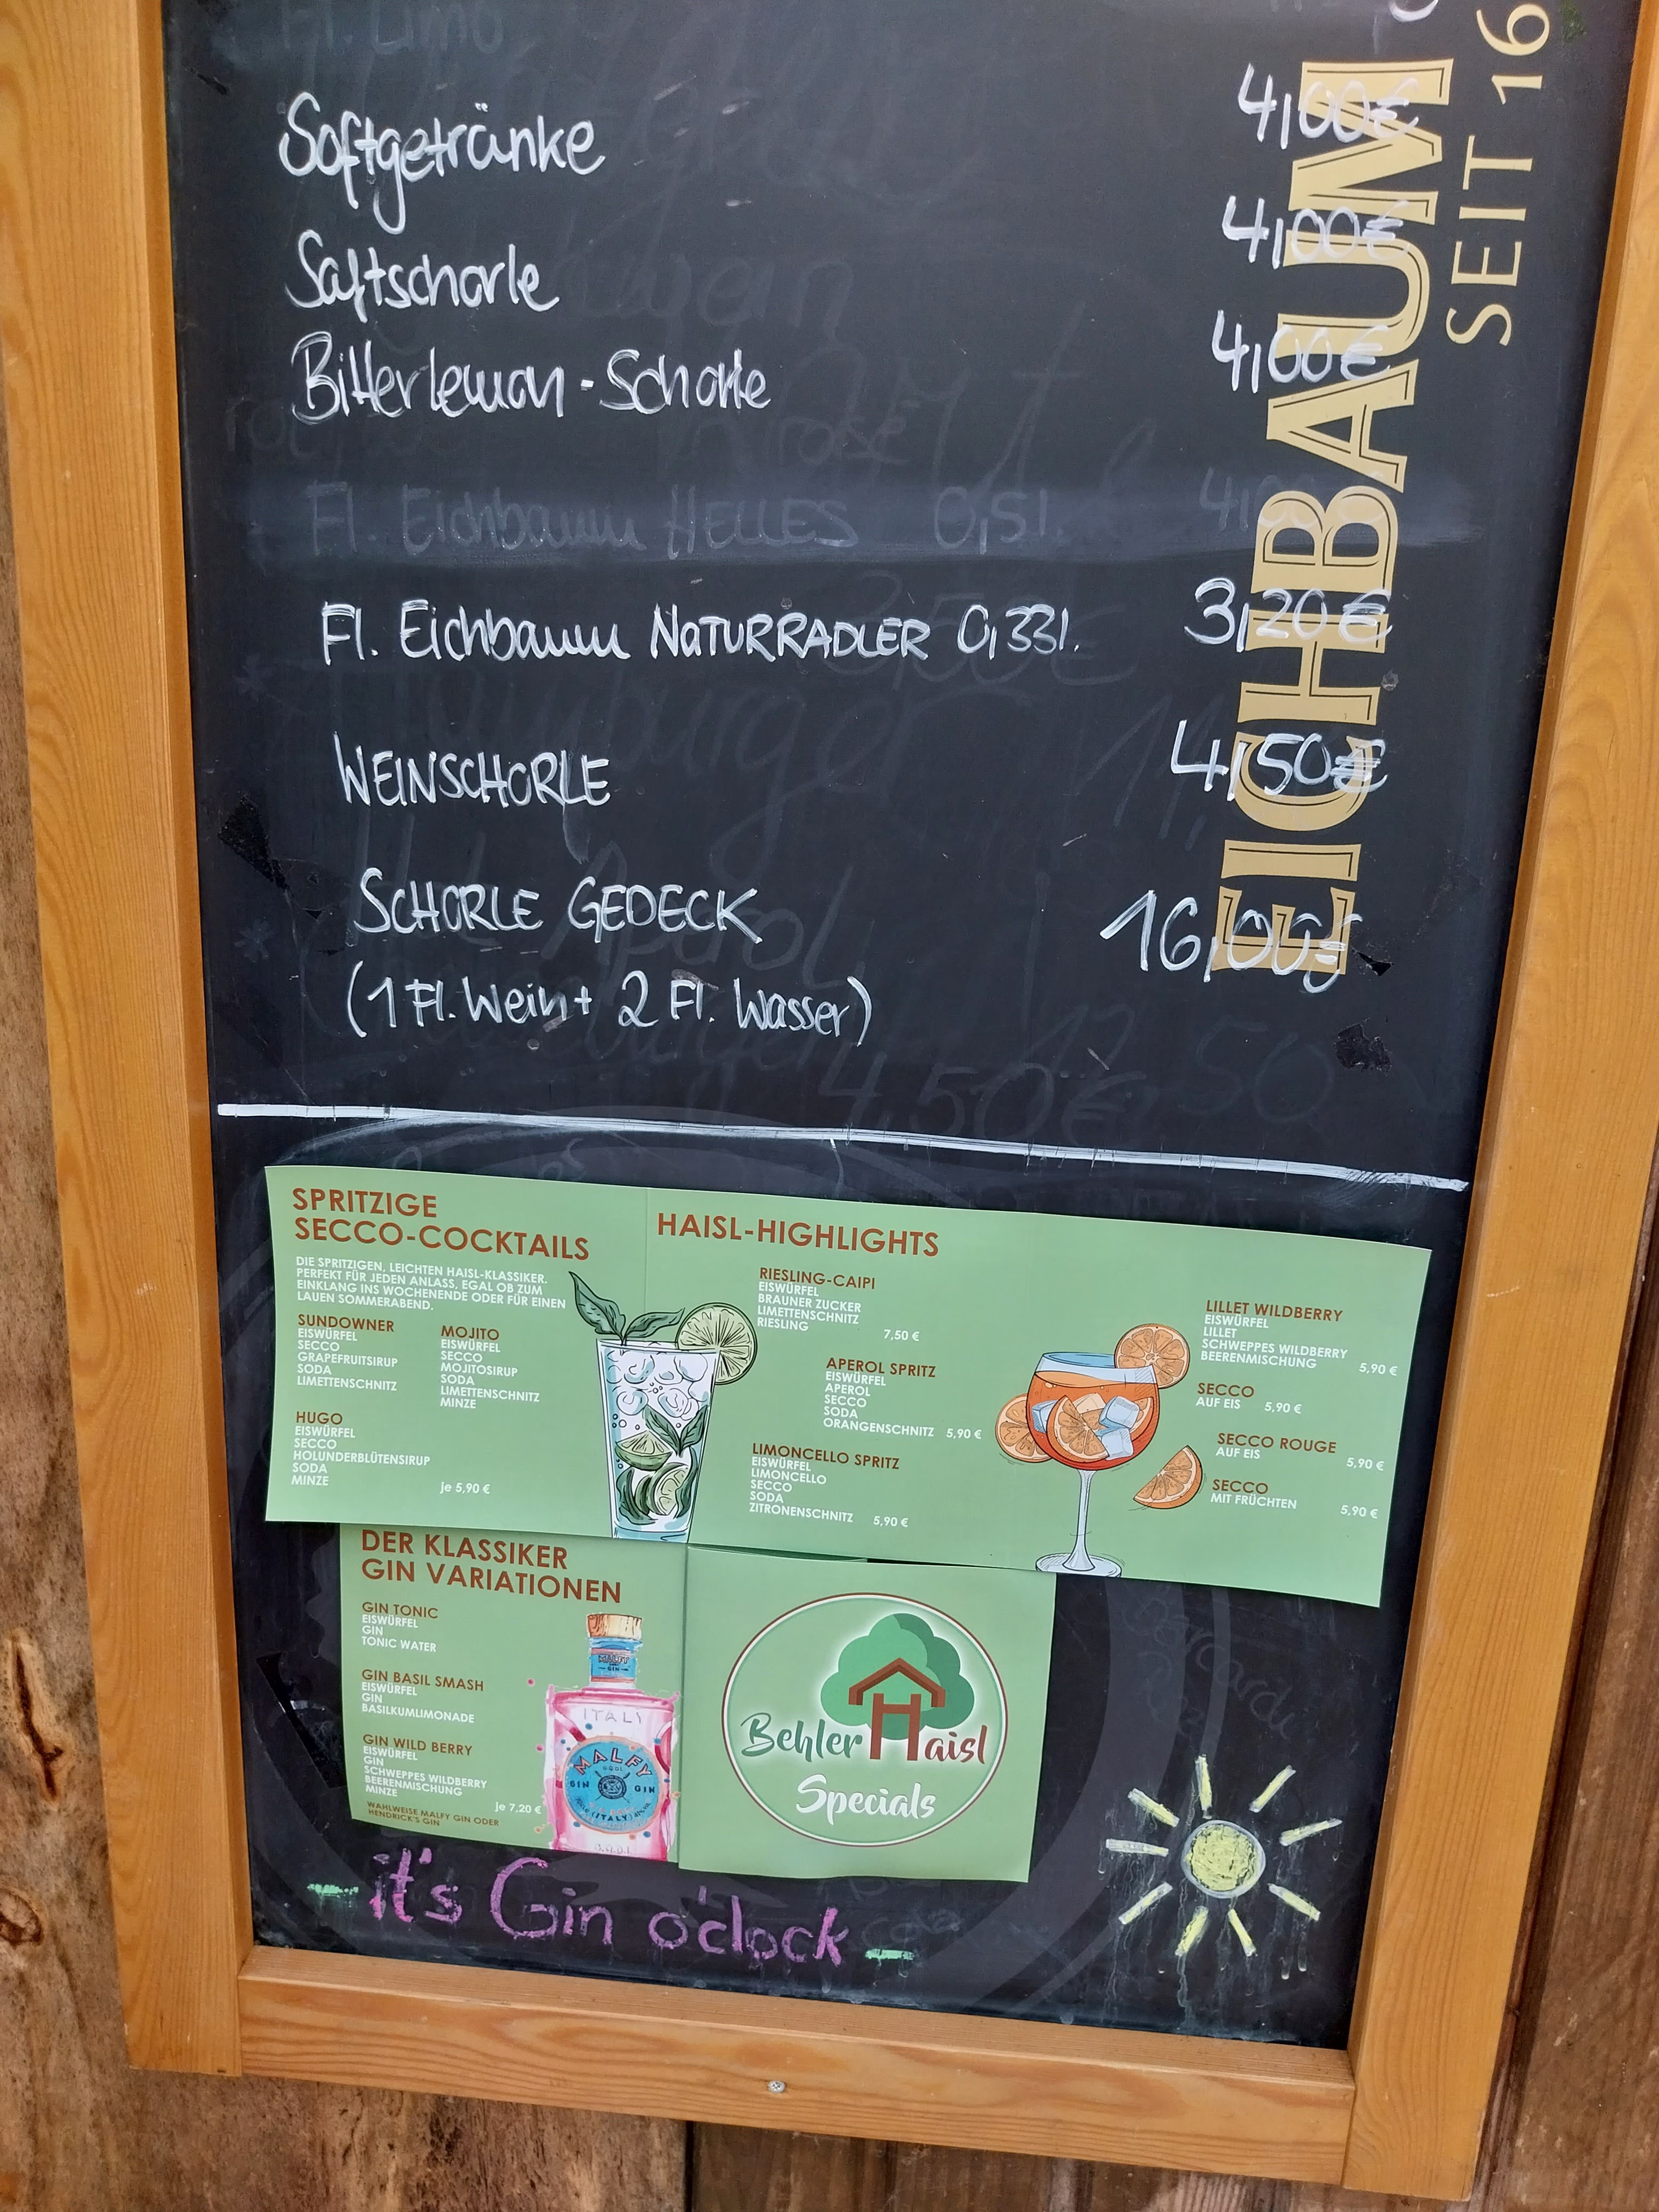 Softgetränke 4,00€
Saftschorle 4,00€
Bitterlemon-Schorle 4,00€
Fl. Eichbaum HELLES 0,5l.
Fl. Eichbaum NATURRADLER 0,33l. 3,20€
WEINSCHORLE 4,50€
SCHORLE GEDECK 16,00€
(1 Fl. Wein + 2 Fl. Wasser)
EICHBAUM
SEIT 16
SPRITZIGE
SECCO-COCKTAILS
DIE SPRITZIGEN, LEICHTEN HAISL-KLASSIKER.
PERFEKT FÜR JEDEN ANLASS, EGAL OB ZUM
EINKLANG INS WOCHENENDE ODER FÜR EINEN
LAUEN SOMMERABEND.
SUNDOWNER
EISWÜRFEL
SECCO
GRAPEFRUITSIRUP
SODA
LIMETTENSCHNITZ
MOJITO
EISWÜRFEL
SECCO
MOJITOSIRUP
SODA
LIMETTENSCHNITZ
MINZE
HUGO
EISWÜRFEL
SECCO
HOLUNDERBLÜTENSIRUP
SODA
MINZE
je 5,90 €
HAISL-HIGHLIGHTS
RIESLING-CAIPI
EISWÜRFEL
BRAUNER ZUCKER
LIMETTENSCHNITZ
RIESLING 7,50 €
APEROL SPRITZ
EISWÜRFEL
APEROL
SECCO
SODA
ORANGENSCHNITZ 5,90 €
LIMONCELLO SPRITZ
EISWÜRFEL
LIMONCELLO
SECCO
SODA
ZITRONENSCHNITZ 5,90 €
LILLET WILDBERRY
EISWÜRFEL
LILLET
SCHWEPPES WILDBERRY
BEERENMISCHUNG 5,90 €
SECCO
AUF EIS 5,90 €
SECCO ROUGE
AUF EIS 5,90 €
SECCO
MIT FRÜCHTEN 5,90 €
DER KLASSIKER
GIN VARIATIONEN
GIN TONIC
EISWÜRFEL
GIN
TONIC WATER
GIN BASIL SMASH
EISWÜRFEL
GIN
BASILKUMLIMONADE
GIN WILD BERRY
EISWÜRFEL
GIN
SCHWEPPES WILDBERRY
BEERENMISCHUNG
MINZE
je 7,20 €
WAHLWEISE MALFY GIN ODER
HENDRICK'S GIN
MALFY
GIN
ITALY
MALFY
GIN GIN
(ITALY)
Behler Haisl
Specials
- it's Gin o'clock -